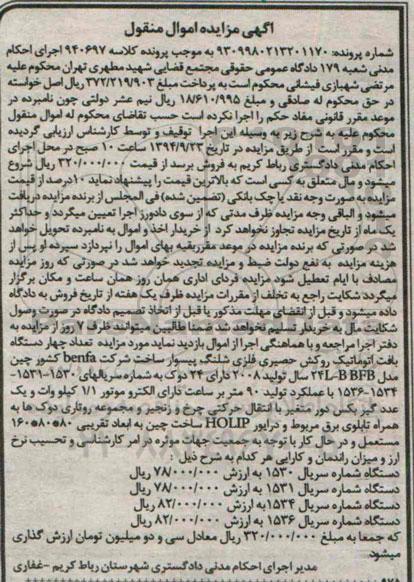 آگهی مزایده اموال منقول
شماره پرونده: ۹۳۰۹۹۸۰۲۱۳۲۰۱۱۷۰ به موجب پرونده کلاسه ۹۴۰۶۹۷ اجرای احکام
مدنی شعبه ۱۷۹ دادگاه عمومی حقوقی مجتمع قضایی شهید مطهری تهران محکوم علیه
مرتضی شهبازی فیشانی محکوم است به پرداخت مبلغ ۳۷۲/۲۱۹/۹۰۳ ریال اصل خواسته
در حق محکوم له صادقی و مبلغ ۱۸۶۱۰/۹۹۵ ریال نیم عشر دولتی چون نامبرده در
موعد مقرر قانونی مفاد حکم را اجرا نکرده است حسب تقاضای محکوم له اموال منقول
محکوم علیه به شرح زیر به وسیله این اجرا توقیف و توسط کارشناس ارزیابی گردیده
است و مقرر است از طریق مزایده در تاریخ ۱۳۹۴/۹/۲۳ ساعت ۱۰ صبح در محل اجرای
احکام مدنی دادگستری رباط کریم به فروش برسد از قیمت ۳۲۰/۰۰۰/۰۰۰ ریال شروع
میشود و مال متعلق به کسی است که بالاترین قیمت را پیشنهاد نماید ۱۰درصد از قیمت
مزایده به صورت وجه نقد یا چک بانکی (تضمین شده) فی المجلس از برنده مزایده دریافت
میشود و الباقی وجه مزایده ظرف مدتی که از سوی دادورز اجرا تعیین میگردد و حداکثر
یک ماه از تاریخ مزایده تجاوز نخواهد کرد از خریدار اخذ و اموال به نامبرده تحویل خواهد
شد در صورتی که برنده مزایده در موعد مقرر بقیه بهای اموال را نپردازد سپرده او پس از
هزینه مزایده به نفع دولت ضبط و مزایده تجدید خواهد شد در صورتی که روز مزایده
مصادف با ایام تعطیل شود مزایده فردای اداری همان روز همان ساعت و مکان برگزار
میگردد شکایت راجع به تخلف از مقررات مزایده ظرف یک هفته از تاریخ فروش به دادگاه
داده میشود و قبل از انقضای مهلت مذکور یا قبل از اتخاذ تصمیم دادگاه در صورت وصول
شکایت مال به خریدار تسلیم نخواهد شد ضمنا طالبین میتوانند ظرف ۷ روز از مزایده به
دفتر اجرا مراجعه و با هماهنگی اجرا از اموال بازدید نماید مورد مزایده تعداد چهار دستگاه
بافت اتوماتیک روکش حصیری فلزی شلنگ پیسوار ساخت شرکت benfa کشور چین
مدل ۲۴L-B BFB سال تولید ۲۰۰۸ دارای ۲۴ دوک به شماره سریالهای ۱۵۳۰-۱۵۳۱-
۱۵۳۴-۱۵۳۶ با عملکرد تولید ۹۰ متر بر ساعت دارای الکترو موتور ۱/۱ کیلو وات و یک
عدد گیر بکس دور متغیر با انتقال حرکتی چرخ و زنجیر و مجموعه روتاری دوک ها به
همراه تابلوی برق مربوط و درایور HOLIP ساخت چین به ابعاد تقریبی ۸۰*۸۰*۱۶۰
مستعمل و در حال کار با توجه به جمیع جهات موثره در امر کارشناسی و تحسیب نرخ
ارز و میزان راندمان و کارایی هر کدام به شرح ذیل
دستگاه شماره سریال ۱۵۳۰ به ارزش ۷۸/۰۰۰/۰۰۰ ریال
دستگاه شماره سریال ۱۵۳۱ به ارزش ۷۸/۰۰۰/۰۰۰ ریال
دستگاه شماره سریال ۱۵۳۴به ارزش ۸۲/۰۰۰/۰۰۰ ریال
دستگاه شماره سریال ۱۵۳۶ به ارزش ۸۲/۰۰۰/۰۰۰ ریال
که جمعا به مبلغ ۳۲۰/۰۰۰/۰۰۰ ریال معادل سی و دو میلیون تومان ارزش گذاری
میشود
مدیر اجرای احکام مدنی دادگستری شهرستان رباط کریم -غفاری